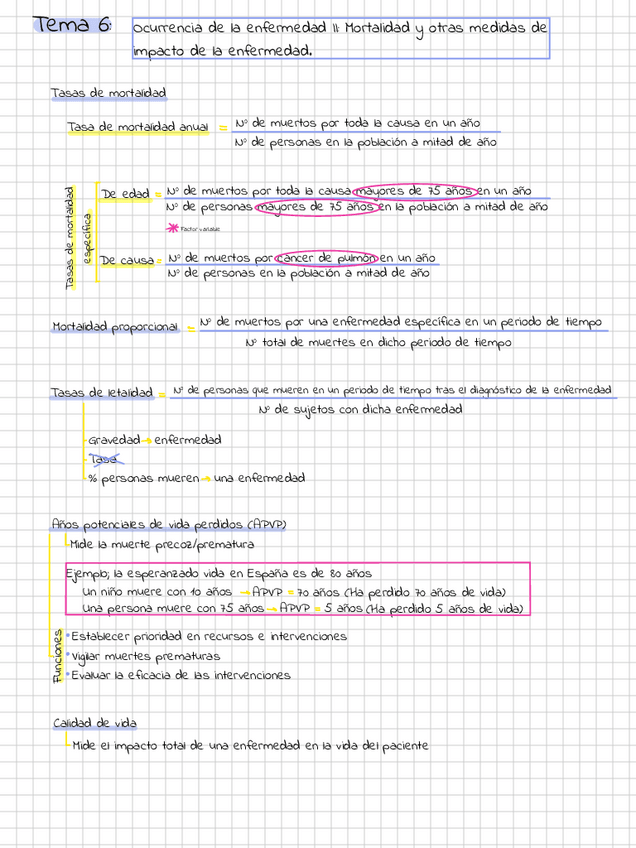 Tema 6:
Ocurrencia de la enfermedad II: Mortalidad y otras medidas de
impacto de la enfermedad.
Tasas de mortalidad
Tasa de mortalidad anual = Nº de muertos por toda la causa en un año
Nº de personas en la población a mitad de año
Tasas de mortalidad
específica
De edad = Nº de muertos por toda la causa mayores de 75 años en un año
Nº de personas mayores de 75 años en la población a mitad de año
* Factor variable
De causa = Nº de muertos por cáncer de pulmón en un año
Nº de personas en la población a mitad de año
Mortalidad proporcional = Nº de muertos por una enfermedad específica en un periodo de tiempo
Nº total de muertes en dicho periodo de tiempo
Tasas de letalidad = Nº de personas que mueren en un periodo de tiempo tras el diagnóstico de la enfermedad
Nº de sujetos con dicha enfermedad
Gravedad → enfermedad
Tasa
% personas mueren → una enfermedad
Años potenciales de vida perdidos (APVP)
Mide la muerte precoz/prematura
Ejemplo; la esperanzado vida en España es de 80 años
Un niño muere con 10 años → APVP = 70 años (Ha perdido 70 años de vida)
Una persona muere con 75 años → APVP = 5 años (Ha perdido 5 años de vida)
Funciones
* Establecer prioridad en recursos e intervenciones
* Vigilar muertes prematuras
* Evaluar la eficacia de las intervenciones
Calidad de vida
Mide el impacto total de una enfermedad en la vida del paciente